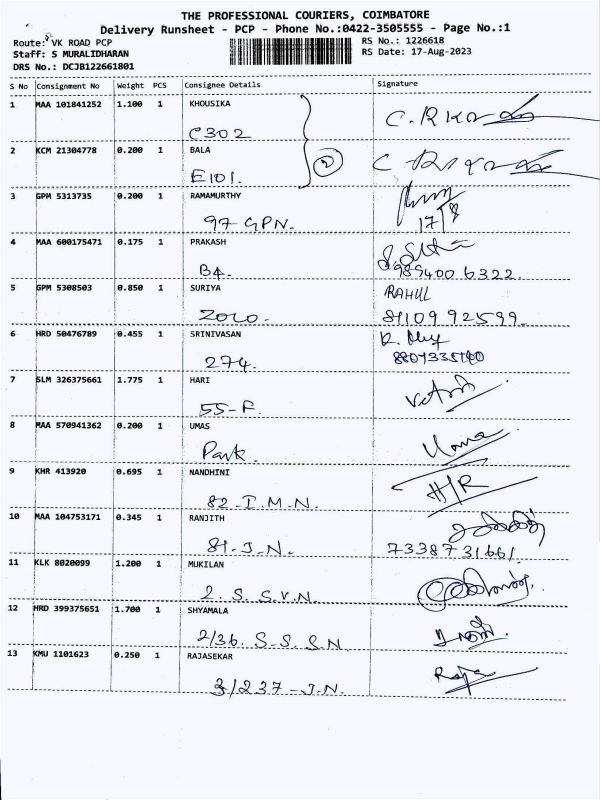 THE PROFESSIONAL COURIERS, COIMBATORE
Delivery Runsheet - PCP - Phone No.:0422-3505555 - Page No.:1
Route: VK ROAD PCP
RS No.: 1226618
Staff: S MURALIDHARAN
RS Date: 17-Aug-2023
DRS No.: DCJB122661801
S No Consignment No Weight PCS Consignee Details Signature
1 MAA 101841252 1.100 1 KHOUSIKA
C302
2 KCM 21304778 0.200 1 BALA
E101.
2
3 GPM 5313735 0.200 1 RAMAMURTHY
97 GPN.
17/8
4 MAA 600175471 0.175 1 PRAKASH
B4.
989400 6322.
5 GPM 5308503 0.850 1 SURIYA
RAHUL
ZOLO.
81109 92599.
6 HRD 50476789 0.455 1 SRINIVASAN
274.
7 SLM 326375661 1.775 1 HARI
55-F.
8 MAA 570941362 0.200 1 UMAS
Park.
Uma
9 KHR 413920 0.695 1 NANDHINI
H/R
82-T.M.N.
10 MAA 104753171 0.345 1 RANJITH
81-J.N.
7338731661.
11 KLK 8020099 1.200 1 MUKILAN
2. S.S.V.N.
12 HRD 399375651 1.700 1 SHYAMALA
2/36. S-S.S.N
13 KMU 1101623 0.250 1 RAJASEKAR
Raja
3/237-J.N.